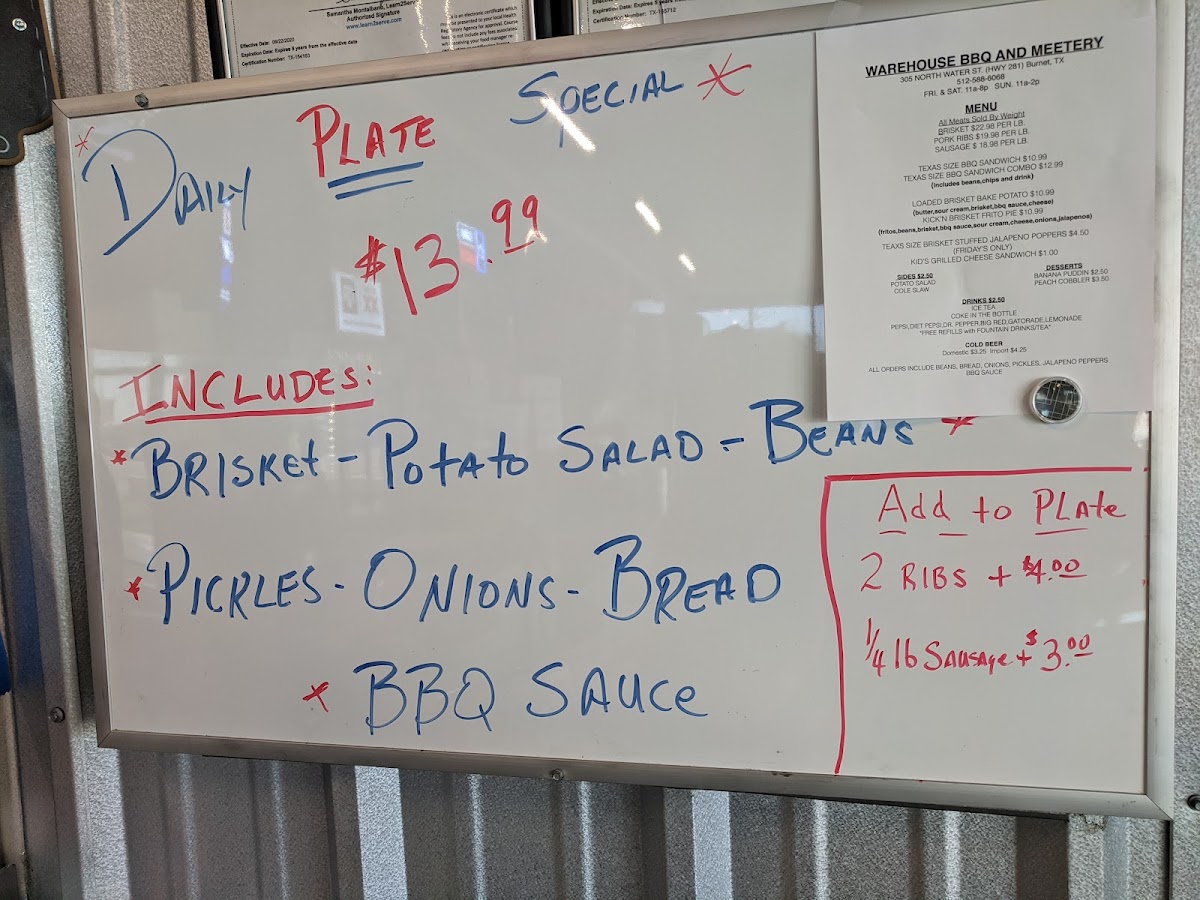 Samantha Montalbano, Learn2Serve
Authorized Signature
www.learn2serve.com
Effective Date: 08/22/2020
Expiration Date: Expires 5 years from the effective date
Certification Number: TX-154163
is an electronic certificate which
be presented to your local Health
Regulatory Agency for approval. Course
fees do not include any fees associated
with
Certification Number: TX-103712
DAILY PLATE SPECIAL
$13.99
INCLUDES:
BRISKEt - POtAtO SALAD - BEANS
PICKLES - ONIONS - BREAD
BBQ SAUCe
Add to PLAte
2 RIBS + $4.00
1/4 lb SAUSAge + $3.00
WAREHOUSE BBQ AND MEETERY
305 NORTH WATER ST. (HWY 281) Burnet, TX
512-588-6068
FRI. & SAT. 11a-8p SUN. 11a-2p
MENU
All Meats Sold By Weight
BRISKET $22.98 PER LB.
PORK RIBS $19.98 PER LB.
SAUSAGE $ 18.98 PER LB.
TEXAS SIZE BBQ SANDWICH $10.99
TEXAS SIZE BBQ SANDWICH COMBO $12.99
(includes beans,chips and drink)
LOADED BRISKET BAKE POTATO $10.99
(butter,sour cream,brisket,bbq sauce,cheese)
KICK'N BRISKET FRITO PIE $10.99
(fritos,beans,brisket,bbq sauce,sour cream,cheese,onions,jalapenos)
TEAXS SIZE BRISKET STUFFED JALAPENO POPPERS $4.50
(FRIDAY'S ONLY)
KID'S GRILLED CHEESE SANDWICH $1.00
SIDES $2.50
POTATO SALAD
COLE SLAW
DESSERTS
BANANA PUDDIN $2.50
PEACH COBBLER $3.50
DRINKS $2.50
ICE TEA
COKE IN THE BOTTLE
PEPSI,DIET PEPSI,DR. PEPPER,BIG RED,GATORADE,LEMONADE
*FREE REFILLS with FOUNTAIN DRINKS/TEA*
COLD BEER
Domestic $3.25 Import $4.25
ALL ORDERS INCLUDE BEANS, BREAD, ONIONS, PICKLES, JALAPENO PEPPERS
BBQ SAUCE